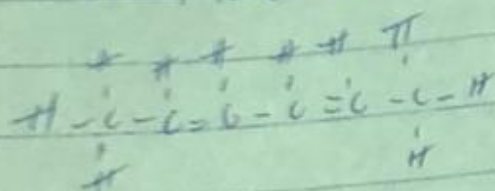 H H H H H H
H - C - C = C - C = C - C - H
H H